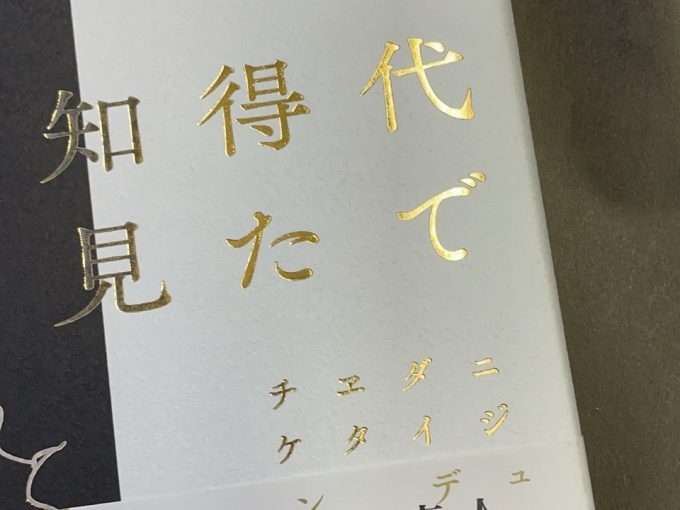 代で
得た
知見
ニジュ
ダイデ
ヱタ
チケン